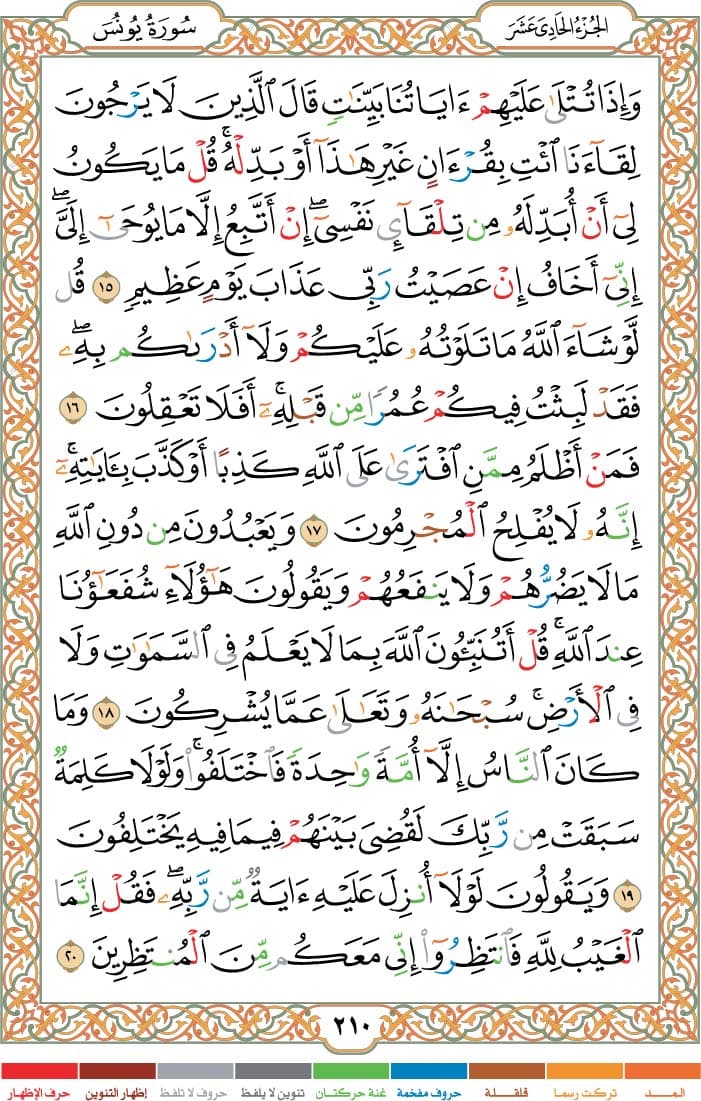 الجُزْءُ الحَادِى عَشَرَ
سُورَةُ يُونُسَ
وَإِذَا تُتْلَىٰ عَلَيْهِمْ ءَايَاتُنَا بَيِّنَٰتٍ قَالَ ٱلَّذِينَ لَا يَرْجُونَ
لِقَآءَنَا ٱئْتِ بِقُرْءَانٍ غَيْرِ هَٰذَآ أَوْ بَدِّلْهُ ۚ قُلْ مَا يَكُونُ
لِىٓ أَنْ أُبَدِّلَهُۥ مِن تِلْقَآئِ نَفْسِىٓ ۖ إِنْ أَتَّبِعُ إِلَّا مَا يُوحَىٰٓ إِلَىَّ ۖ
إِنِّىٓ أَخَافُ إِنْ عَصَيْتُ رَبِّى عَذَابَ يَوْمٍ عَظِيمٍ ١٥ قُل
لَّوْ شَآءَ ٱللَّهُ مَا تَلَوْتُهُۥ عَلَيْكُمْ وَلَآ أَدْرَىٰكُم بِهِۦ ۖ
فَقَدْ لَبِثْتُ فِيكُمْ عُمُرًا مِّن قَبْلِهِۦٓ ۚ أَفَلَا تَعْقِلُونَ ١٦
فَمَنْ أَظْلَمُ مِمَّنِ ٱفْتَرَىٰ عَلَى ٱللَّهِ كَذِبًا أَوْ كَذَّبَ بِـَٔايَٰتِهِۦٓ ۚ
إِنَّهُۥ لَا يُفْلِحُ ٱلْمُجْرِمُونَ ١٧ وَيَعْبُدُونَ مِن دُونِ ٱللَّهِ
مَا لَا يَضُرُّهُمْ وَلَا يَنفَعُهُمْ وَيَقُولُونَ هَٰٓؤُلَآءِ شُفَعَٰٓؤُنَا
عِندَ ٱللَّهِ ۚ قُلْ أَتُنَبِّـُٔونَ ٱللَّهَ بِمَا لَا يَعْلَمُ فِى ٱلسَّمَٰوَٰتِ وَلَا
فِى ٱلْأَرْضِ ۚ سُبْحَٰنَهُۥ وَتَعَٰلَىٰ عَمَّا يُشْرِكُونَ ١٨ وَمَا
كَانَ ٱلنَّاسُ إِلَّآ أُمَّةً وَٰحِدَةً فَٱخْتَلَفُوا۟ ۚ وَلَوْلَا كَلِمَةٌ
سَبَقَتْ مِن رَّبِّكَ لَقُضِىَ بَيْنَهُمْ فِيمَا فِيهِ يَخْتَلِفُونَ
١٩ وَيَقُولُونَ لَوْلَآ أُنزِلَ عَلَيْهِ ءَايَةٌ مِّن رَّبِّهِۦ ۖ فَقُلْ إِنَّمَا
ٱلْغَيْبُ لِلَّهِ فَٱنتَظِرُوٓا۟ إِنِّى مَعَكُم مِّنَ ٱلْمُنتَظِرِينَ ٢٠
٢١٠
المـــد
تركت رسما
قلقـلـة
حروف مفخمة
غنة حركتان
تنوين لا يلفظ
حروف لا تلفظ
إظهار التنوين
حرف الإظهار